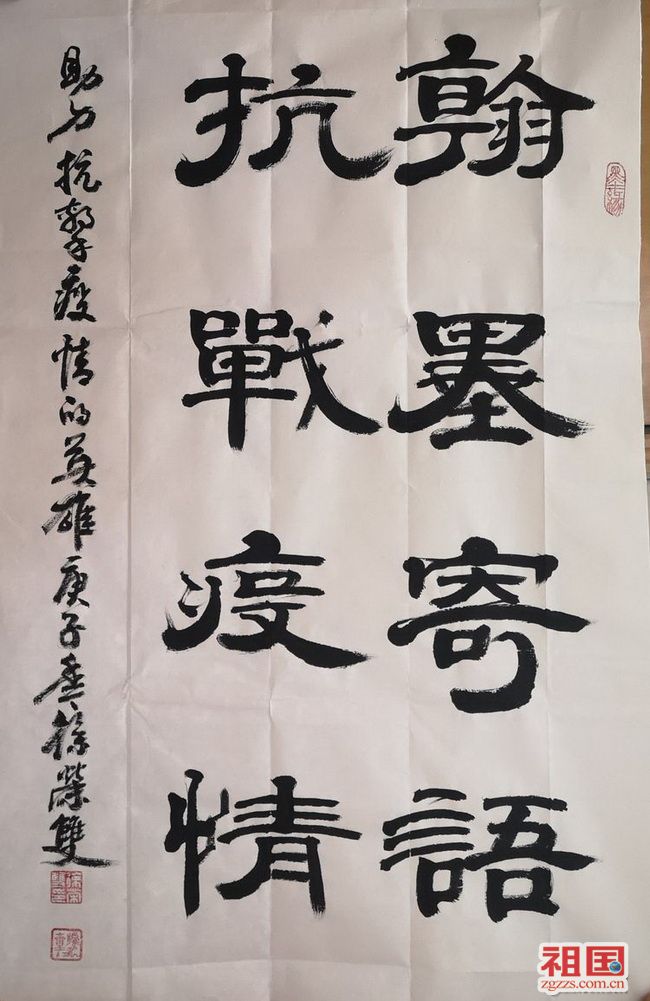 翰墨寄語
抗戰疫情
助力抗擊疫情的英雄庚子春徐榮雙
祖国
zgzzs.com.cn